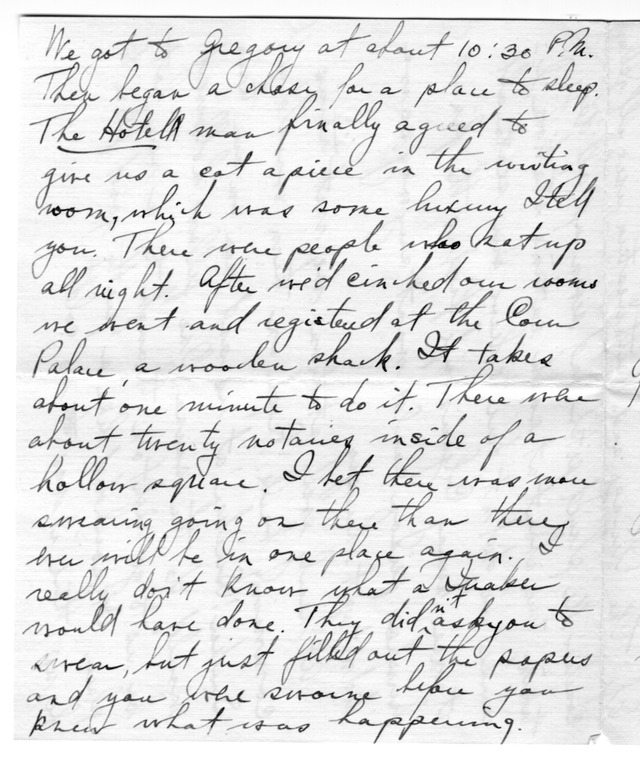 We got to Gregory at about 10:30 P.M.
Then began a chase for a place to sleep.
The Hotel man finally agreed to
give us a cot apiece in the writing
room, which was some luxury I tell
you. There were people who sat up
all night. After we'd cinched our rooms
we went and registered at the Corn
Palace, a wooden shack. It takes
about one minute to do it. There were
about twenty notaries inside of a
hollow square. I bet there was more
swearing going on there than there
ever will be in one place again. I
really don't know what a Quaker
would have done. They didn't ask you to
swear, but just filled out the papers
and you were sworne before you
knew what was happening.